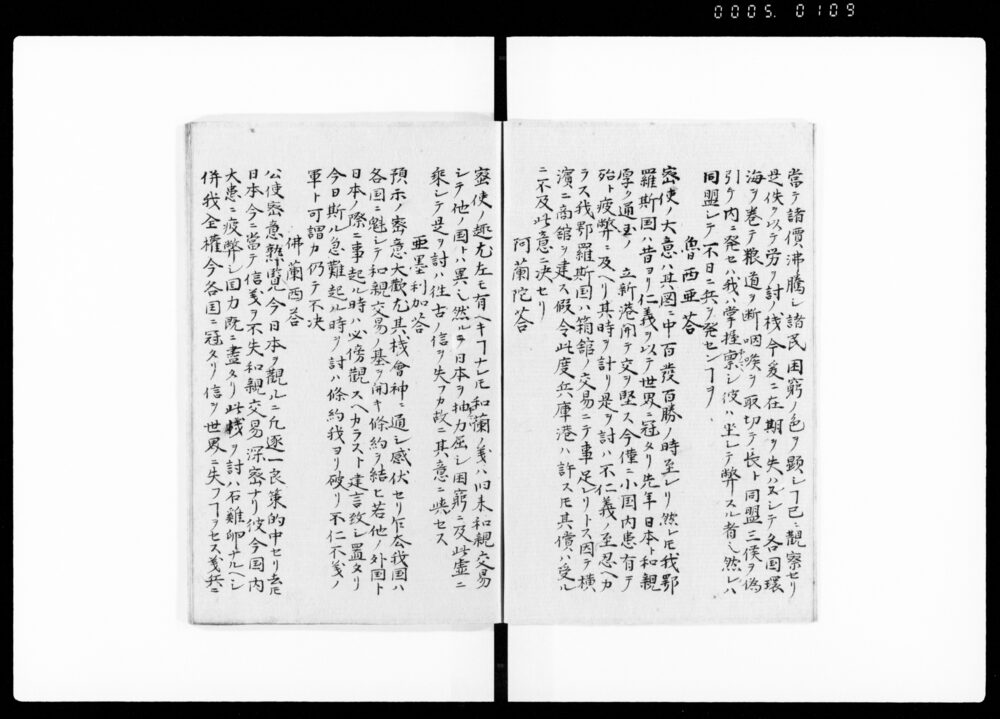 0005. 0109
當テ諸價沸騰シ諸民困窮ノ色ヲ顕シヿ已ニ観察セリ
是佚ヲ以テ労ヲ討ノ機今爰ニ在期ヲ失ハズシテ各国環
海ヲ巻テ粮道ヲ断咽喉ヲ取切テ長ト同盟三侯ヲ偽
引テ内ニ発セハ我ハ掌握禀シ彼ハ坐シテ弊スル者也然レハ
同盟シテ不日ニ兵ヲ発センヿヲ
魯西亜答
密使ノ大意ハ其図ニ中百発百勝ノ時至レリ然レ𪜈我鄂
羅斯国ハ昔ヨリ仁義ヲ以テ世界ニ冠タリ先年日本ト和親
厚ク通至ノ立新港開テ交ヲ堅ス今僅ニ小国内患有テ
殆ト疲弊ニ及ヘリ其時ヲ計リ是ヲ討ハ不仁義ノ至忍ヘカ
ラス我鄂羅斯国ハ箱舘ノ交易ニテ事足レリトス因テ横
濱ニ商舘ヲ建ス假令此度兵庫港ハ許ス𪜈其償ハ受ル
ニ不及此意ニ決セリ
阿蘭陀答
密使ノ趣尤左モ有ヘキヿナレ𪜈和蘭ノ義ハ旧来和親交易
シテ他ノ国トハ異也然ルヲ日本ヲ抽力屈シ困窮ニ及此虚ニ
乗シテ是ヲ討ハ往古ノ信ヲ失フカ故ニ其意ニ與セス
亜墨利加答
預示ノ密意大歡尤其機會神ニ通シ感伏セリ乍去我国ハ
各国ニ魁シテ和親交易ノ基ヲ開キ條約ヲ結ヒ若他ノ外国ト
日本ノ際ニ事起ル時ハ必傍觀スヘカラスト建言致シ置タリ
今日斯ル急難起ル時ヲ討ハ條約我ヨリ破リ不仁不義ノ
軍ト可謂カ仍テ不决
佛蘭西答
公使密意熟覧今日本ヲ觀ルニ凡逐一良策的中セリ去𪜈
日本今ニ當テ信義ヲ不失和親交易深密ナリ彼今国内
大患ニ疲弊シ国力既ニ盡タリ此機ヲ討ハ石雞卵ナルヘシ
併我全權今各国ニ冠タリ信ヲ世界ニ失フヿヲセス義兵ニ